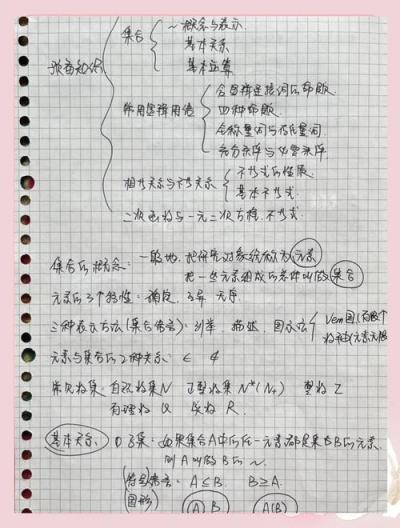 集合 ~概念与表示
基本关系
基本运算
预备知识
常用逻辑用语 含逻辑连接词的命题
四种命题
全称量词与存在量词
充分条件与必要条件
相等关系与不等关系 不等式的性质
基本不等式
二次函数与一元二次方程、不等式
集合的概念: 一般地, 把研究对象统称为元素
把一些元素组成的总体叫做集合
元素的3个特性: 确定、互异、无序
三种表示方法(集合语言): 列举、描述、图示法 Venn图(有限个
数轴(元素无限
元素与集合的2种关系: ∈ ∉
常见数集: 自然数集N 正整数集 N*(N+) 整数 Z
有理数 Q 实数 R.
基本关系: ① 子集: 如果集合A中的任一元素都是集合B的元素.
则A叫做B的 ~.
(符号)语言: A⊆B B⊇A.
(图形) A B A(B)